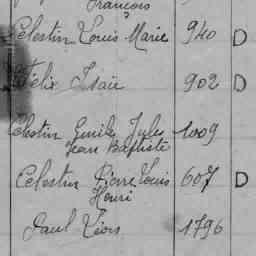 François
Celestin Louis Marie 940 D
Félix Isaïe 902 D
Celestin Emile Jules 1009
Jean Baptiste
Celestin Pierre Louis 607 D
Henri
Paul Léon 1796